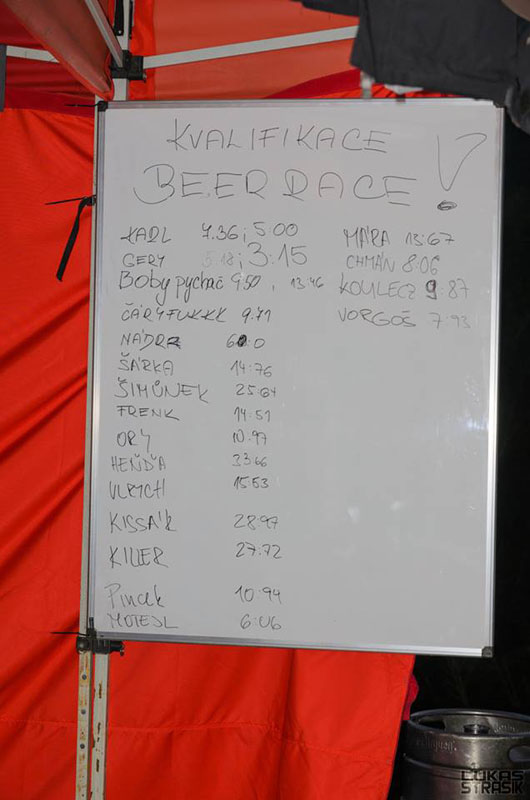 KVALIFIKACE
BEER RACE !
KARL 7.36; 5:00
GERY 5:18; 3:15
Boby pychač 9:50, 13:46
ČÁRYFUKKK 9.71
NÁDRŽ 6:0
ŠÁRKA 14:76
ŠIMŮNEK 25:64
FRENK 14:51
ORY 10.97
HEŇĎA 33:66
ULRYCH 15:53
KISSÁK 28:97
KILLER 27:72
Pincek 10:94
MOTEJL 6:06
MÁRA 13:67
CHMÁN 8:06
KOULECZ 9:87
VORGOŠ 7:93
LUKAS
STRASIK